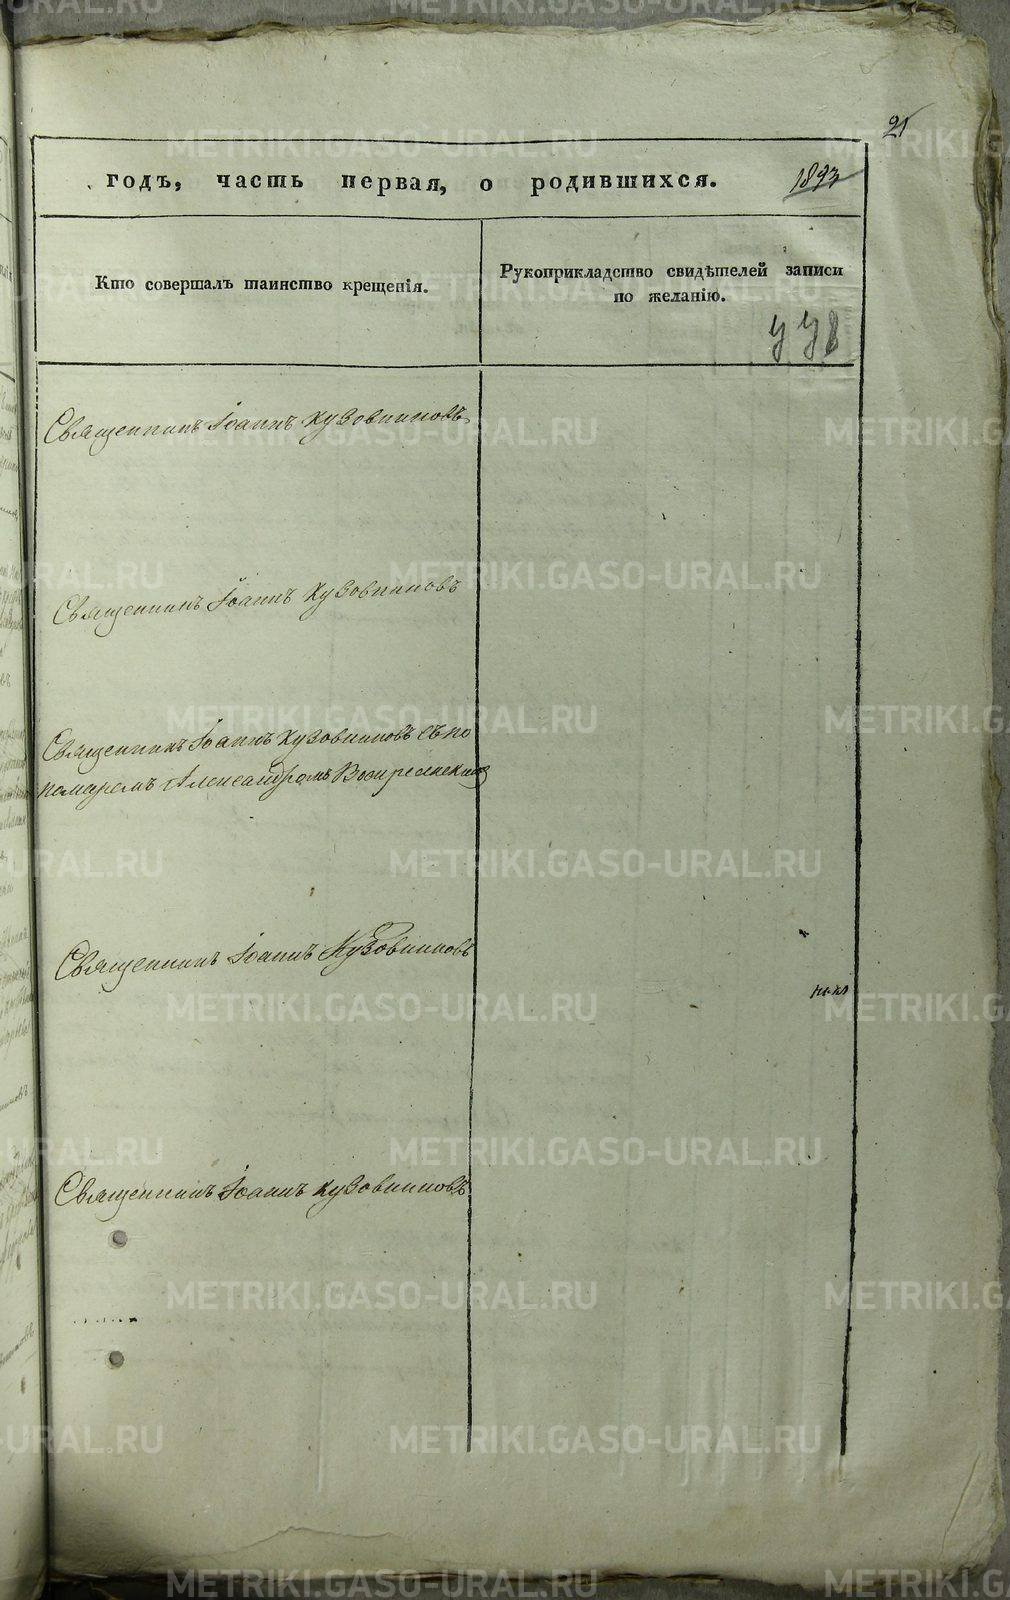 21
годъ, часть первая, о родившихся. 1893
Кто совершалъ таинство крещенія.
Рукоприкладство свидѣтелей записи
по желанію.
Священникъ Іоаннъ Кузовниковъ
Священникъ Іоаннъ Кузовниковъ
Священникъ Іоаннъ Кузовниковъ съ по
номаремъ Александромъ Воскресенским
Священникъ Іоаннъ Кузовниковъ
Священникъ Іоаннъ Кузовниковъ
METRIKI.GASO-URAL.RU